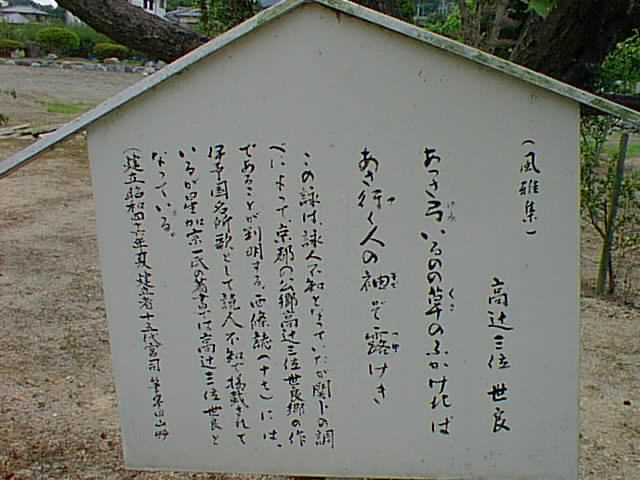 (風雅集)
高辻三位 世良
あさ行く人の袖ぞ露けき
この詠は、詠人不知となっていたが関下の調
べによって京都の公郷高辻三位世良郷の作
であることが判明する。西條誌(十七)には、
伊予国名所歌として読人不知で掲載されて
いるが星加宗一氏の著書では高辻三位世良と
なっている。
(建立昭和四十六年 建立者十五代宮司